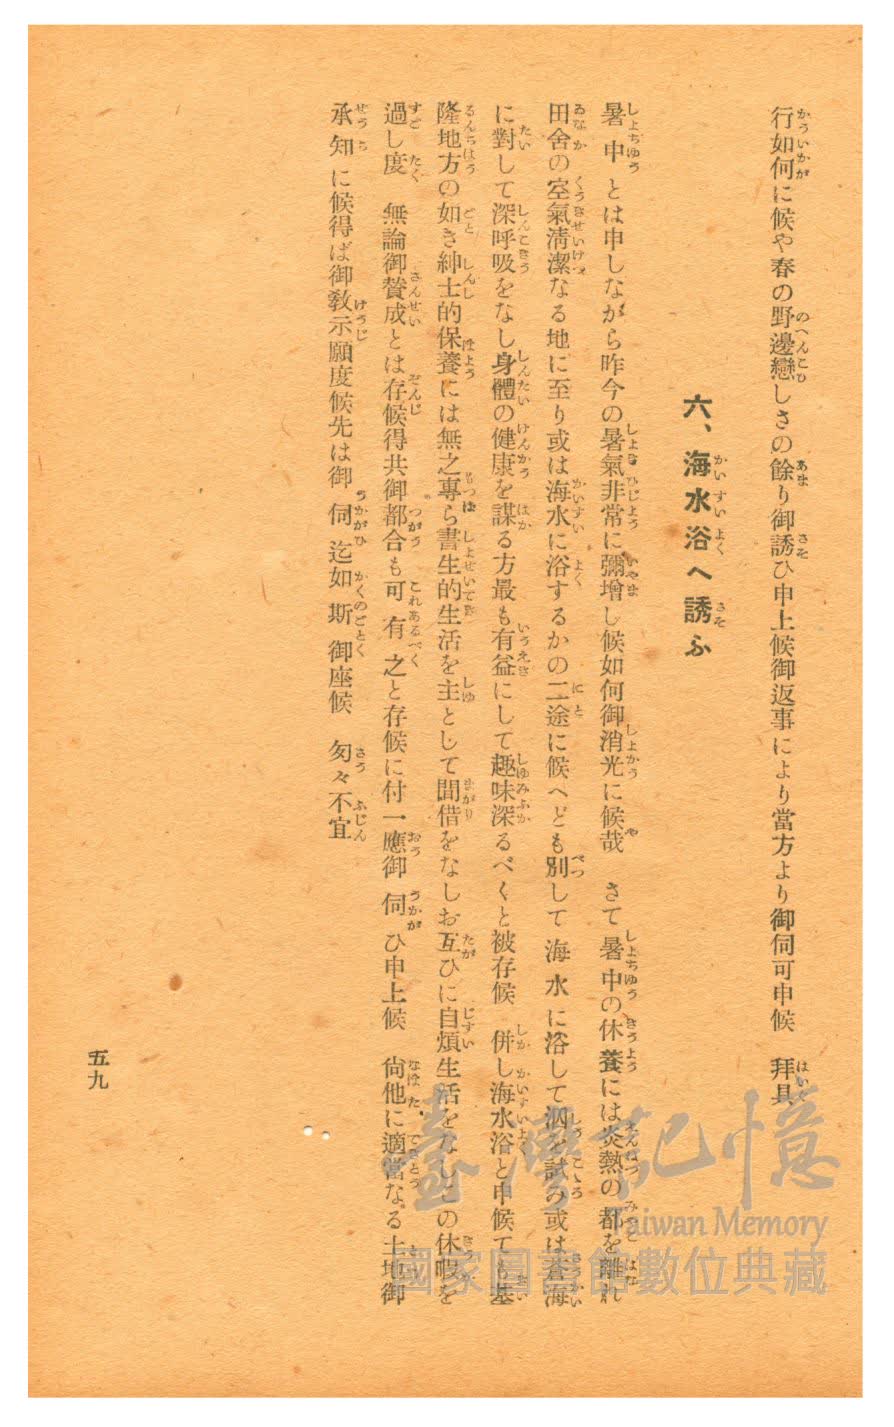 行如何に候や春の野邊戀しさの餘り御誘ひ申上候御返事により當方より御伺可申候　拜具
六、海水浴へ誘ふ
暑中とは申しながら昨今の暑氣非常に彌增し候如何御消光に候哉　さて暑中の休養には炎熱の都を離れ
田舍の空氣淸潔なる地に至り或は海水に浴するかの二途に候へども別して海水に浴して泅を試み或は蒼海
に對して深呼吸をなし身體の健康を謀る方最も有益にして趣味深るべくと被存候　併し海水浴と申候ても基
隆地方の如き紳士的保養には無之專ら書生的生活を主として間借をなしお互ひに自煩生活をなしこの休暇を
過し度　無論御贊成とは存候得共御都合も可有之と存候に付一應御伺ひ申上候　尙他に適當なる土地御
承知に候得ば御敎示願度候先は御伺迄如斯御座候　匆々不宜
五九
臺灣記憶
Taiwan Memory
國家圖書館數位典藏